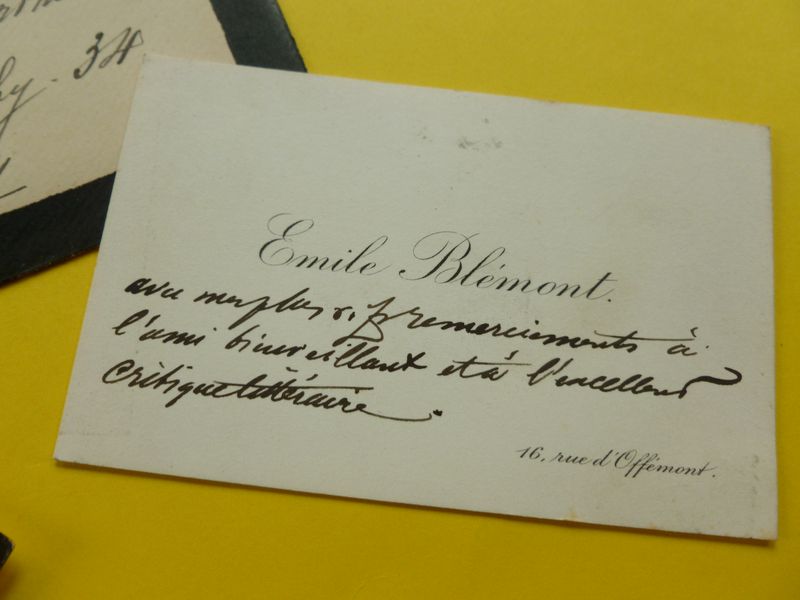 34
Emile Blémont.
avec mes plus remerciements à
l'ami bienveillant et à l'excellent
critique littéraire.
16, rue d'Offémont.